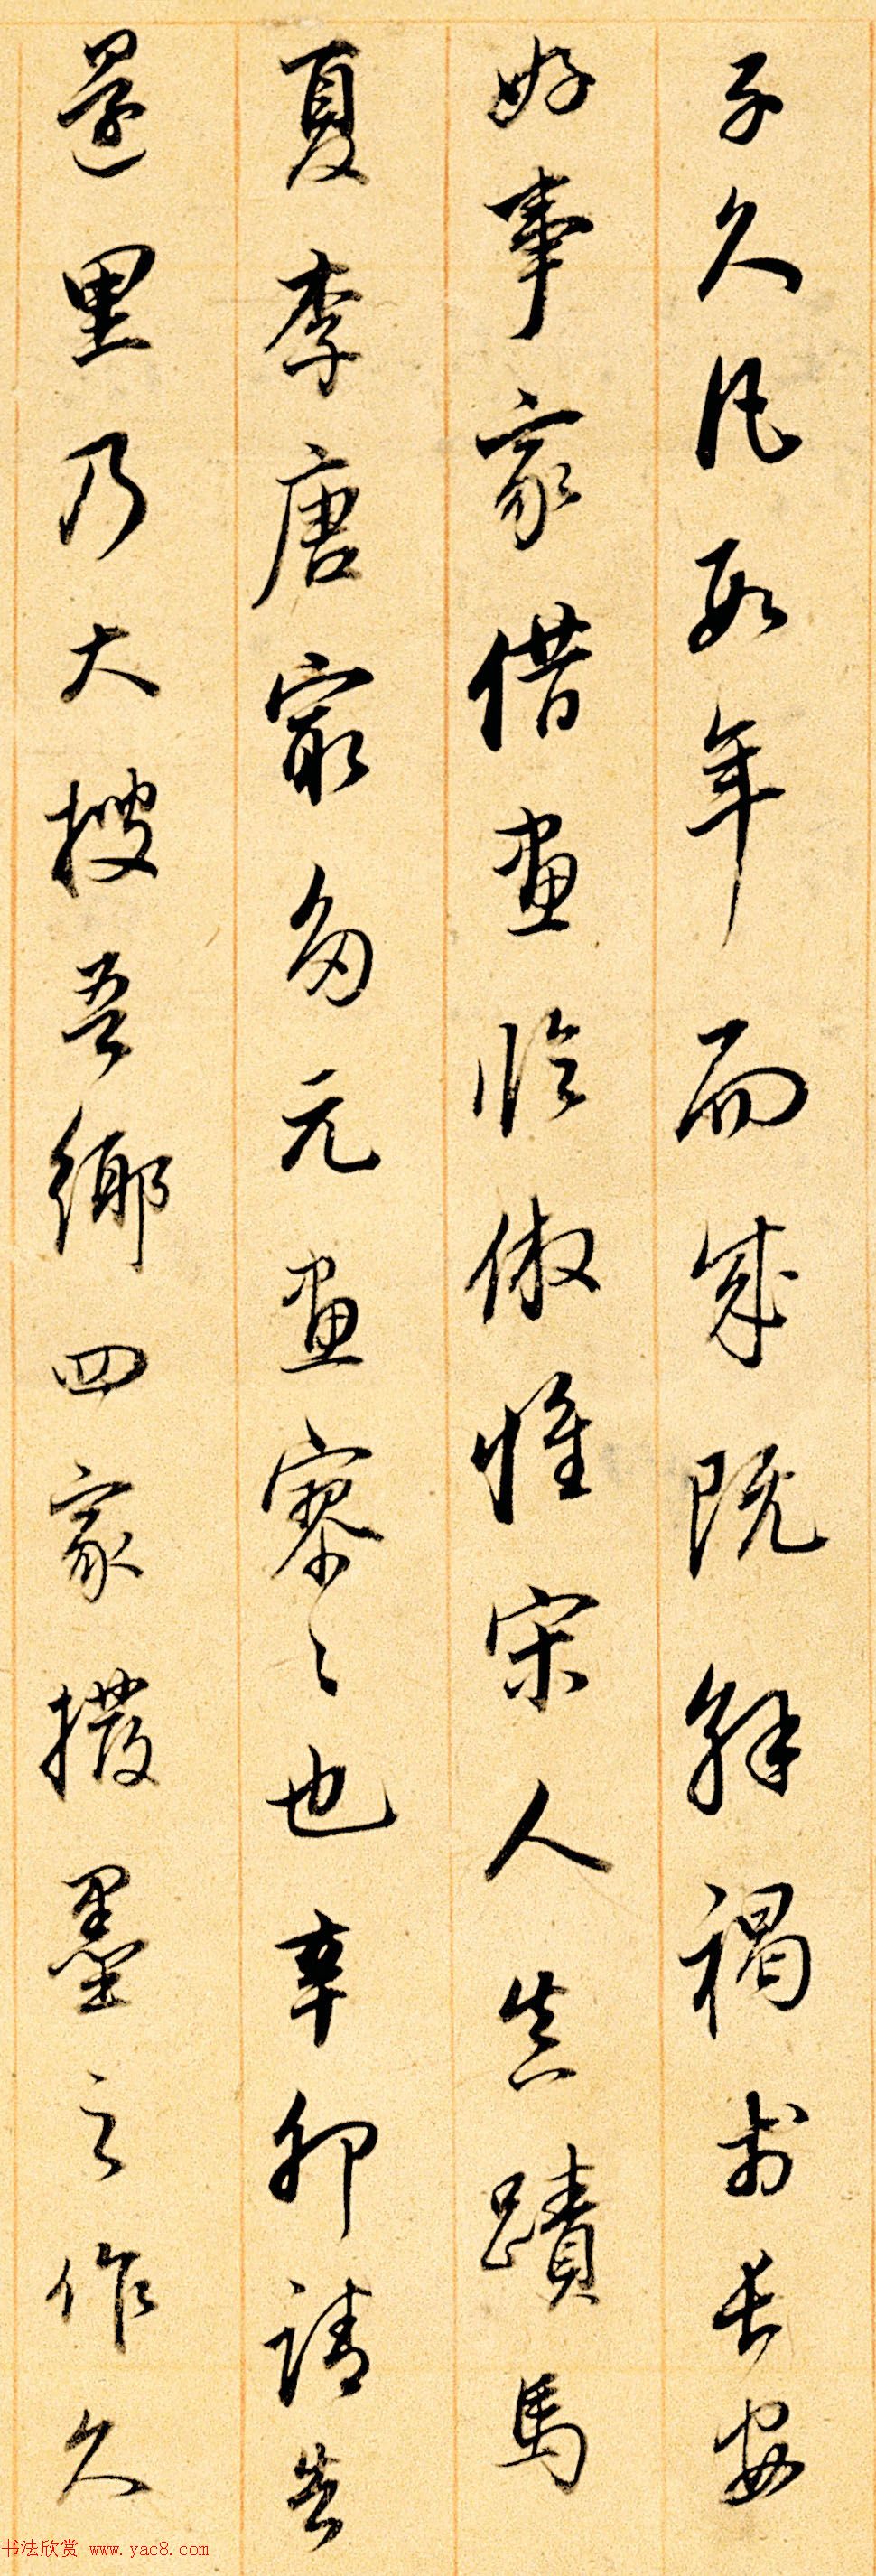 子久凡数年而成既解褐于长安
好事家借畫临倣惟宋人真蹟馬
夏李唐家多元畫寥〻也辛卯請告
還里乃大搜吾鄉四家潑墨之作久
书法欣赏 www.yac8.com